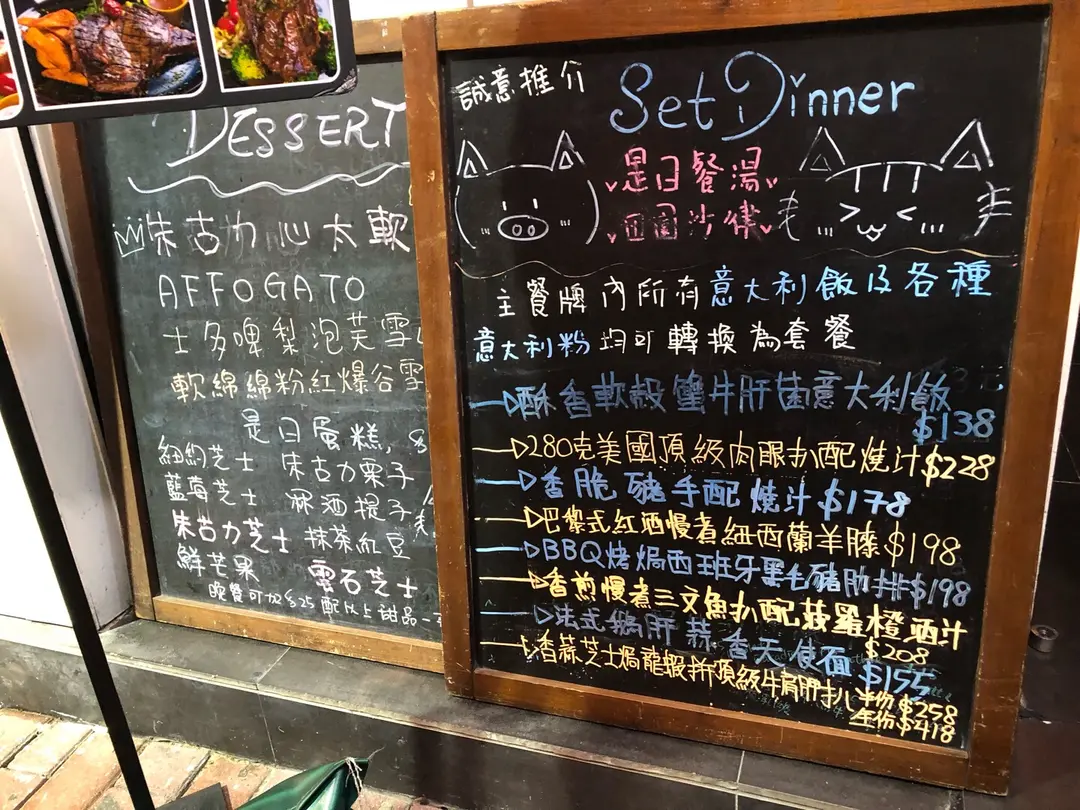 DESSERT
朱古力心太軟
AFFOGATO
士多啤梨泡芙雪
軟綿綿粉紅爆谷雪
是日蛋糕,
紐約芝士 朱古力栗子
藍莓芝士 冧酒提子
朱古力芝士 抹茶紅豆
鮮芒果 雲石芝士
晚餐可加$25配以上甜品一
誠意推介
Set Dinner
是日餐湯
田園沙律
主餐牌內所有意大利飯及各種
意大利粉均可轉換為套餐
酥香軟殼蟹牛肝菌意大利飯
$138
280克美國頂級肉眼扒配燒汁$228
香脆豬手配燒汁$178
巴黎式紅酒慢煮紐西蘭羊膝$198
BBQ烤焗西班牙黑毛豬肋排$198
香煎慢煮三文魚扒配菠蘿橙酒汁
$208
法式鵝肝蒜香天使面$155
香蒜芝士焗龍蝦拼頂級牛肩胛扒半份$258
全份$418